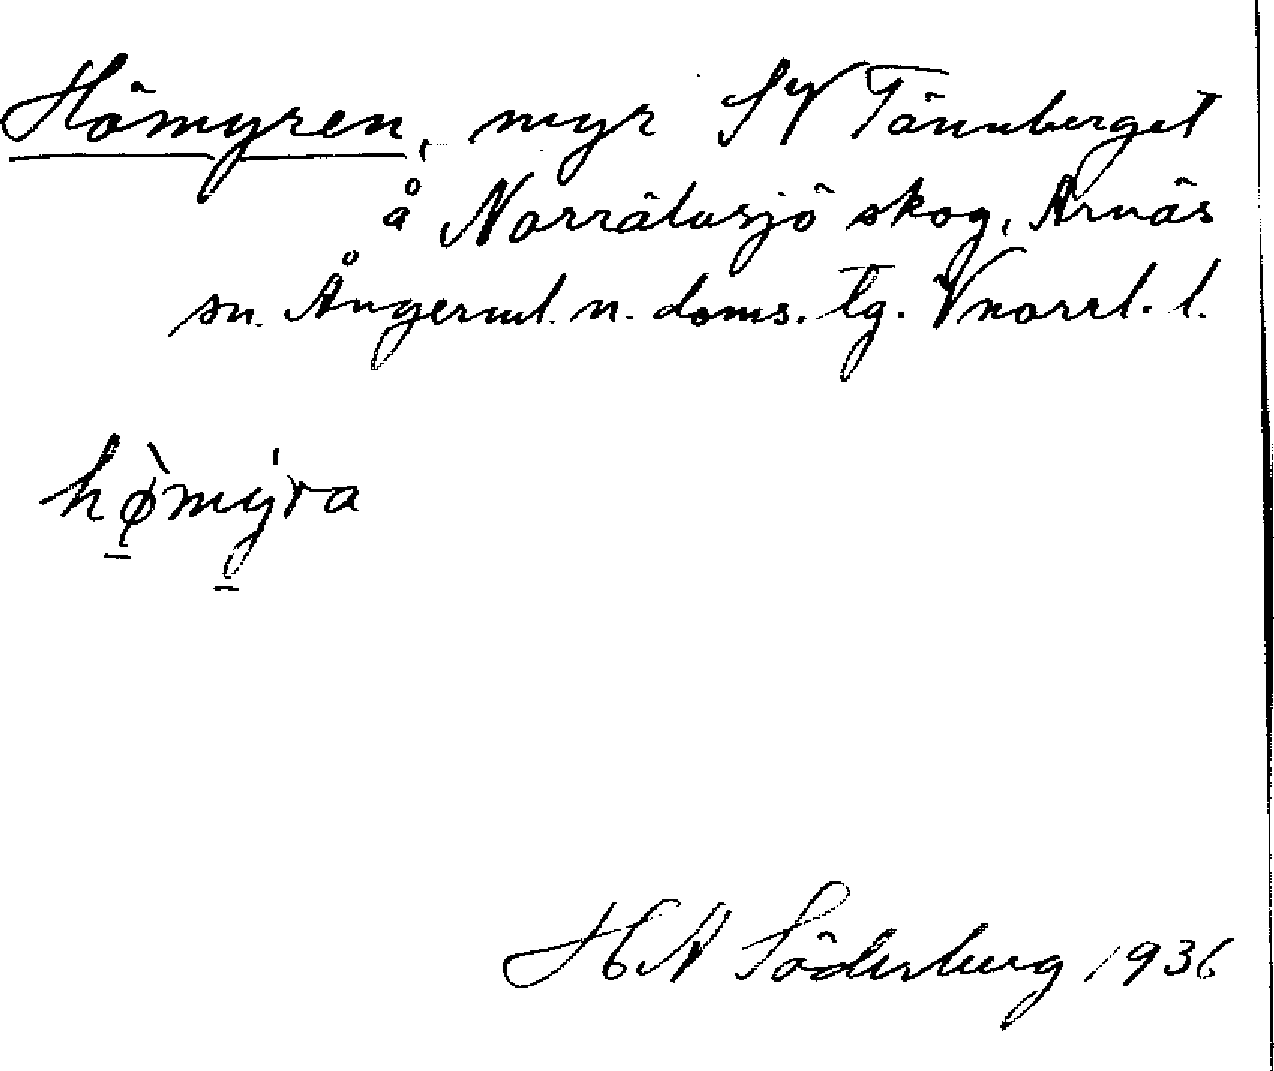 Hömyren, myr SV Tännberget
å Norrälvsjö skog, Arnäs
sn. Ångerml. n. doms. tg. Vnorrl. l.
hø̀mýra
H A Söderberg 1936